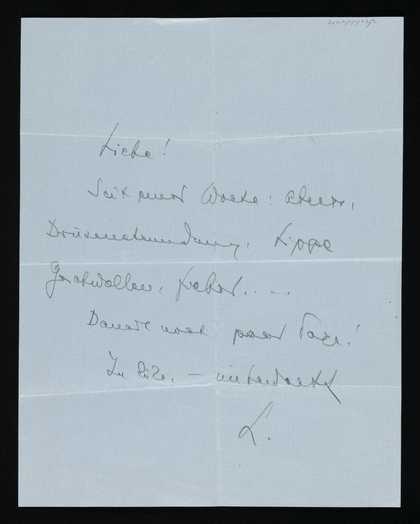 Liebe!
Seit einer Woche:
Drüsenentzündung, Lippe
Geschwollen, Fieber. . . .
Dauert noch paar Tage!
In Eile, —
L.